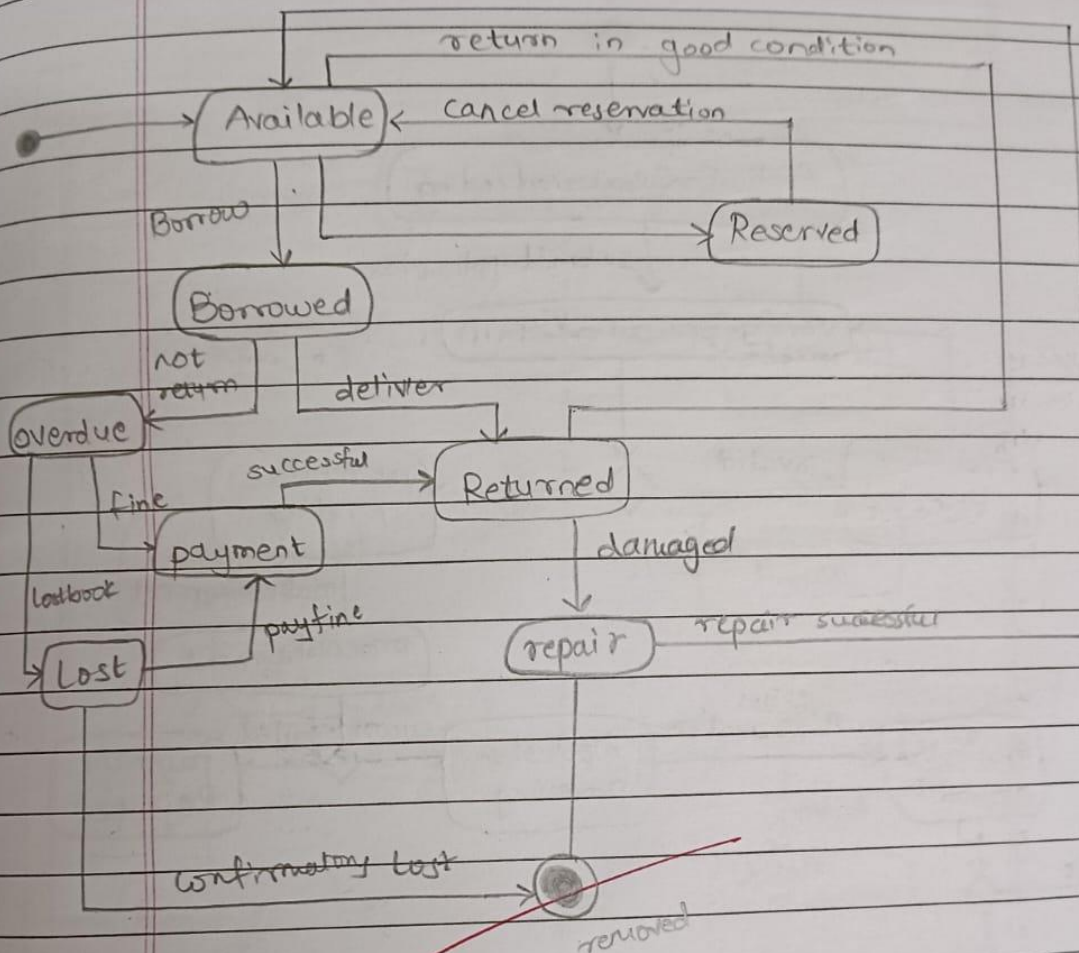 return in good condition
Available
cancel reservation
Borrow
Reserved
Borrowed
not
return
deliver
overdue
successful
Returned
fine
payment
damaged
lostbook
payfine
repair successful
repair
Lost
lost
removed